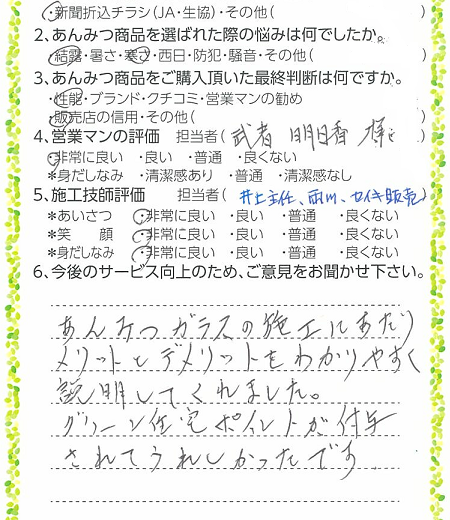 ・新聞折込チラシ(JA・生協)・その他( )
2、あんみつ商品を選ばれた際の悩みは何でしたか。
・結露・暑さ・寒さ・西日・防犯・騒音・その他( )
3、あんみつ商品をご購入頂いた最終判断は何ですか。
・性能・ブランド・クチコミ・営業マンの勧め
・販売店の信用・その他( )
4、営業マンの評価 担当者( 武者 明日香 様 )
・非常に良い ・良い ・普通 ・良くない
*身だしなみ ・清潔感あり ・普通 ・清潔感なし
5、施工技師評価 担当者( 井上主任、雨川、セイキ販売 )
*あいさつ ・非常に良い ・良い ・普通 ・良くない
*笑 顔 ・非常に良い ・良い ・普通 ・良くない
*身だしなみ ・非常に良い ・良い ・普通 ・良くない
6、今後のサービス向上のため、ご意見をお聞かせ下さい。
あんみつガラスの施工にあたり
メリットとデメリットをわかりやすく
説明してくれました。
グリーン住宅ポイントが付与
されてうれしかったです